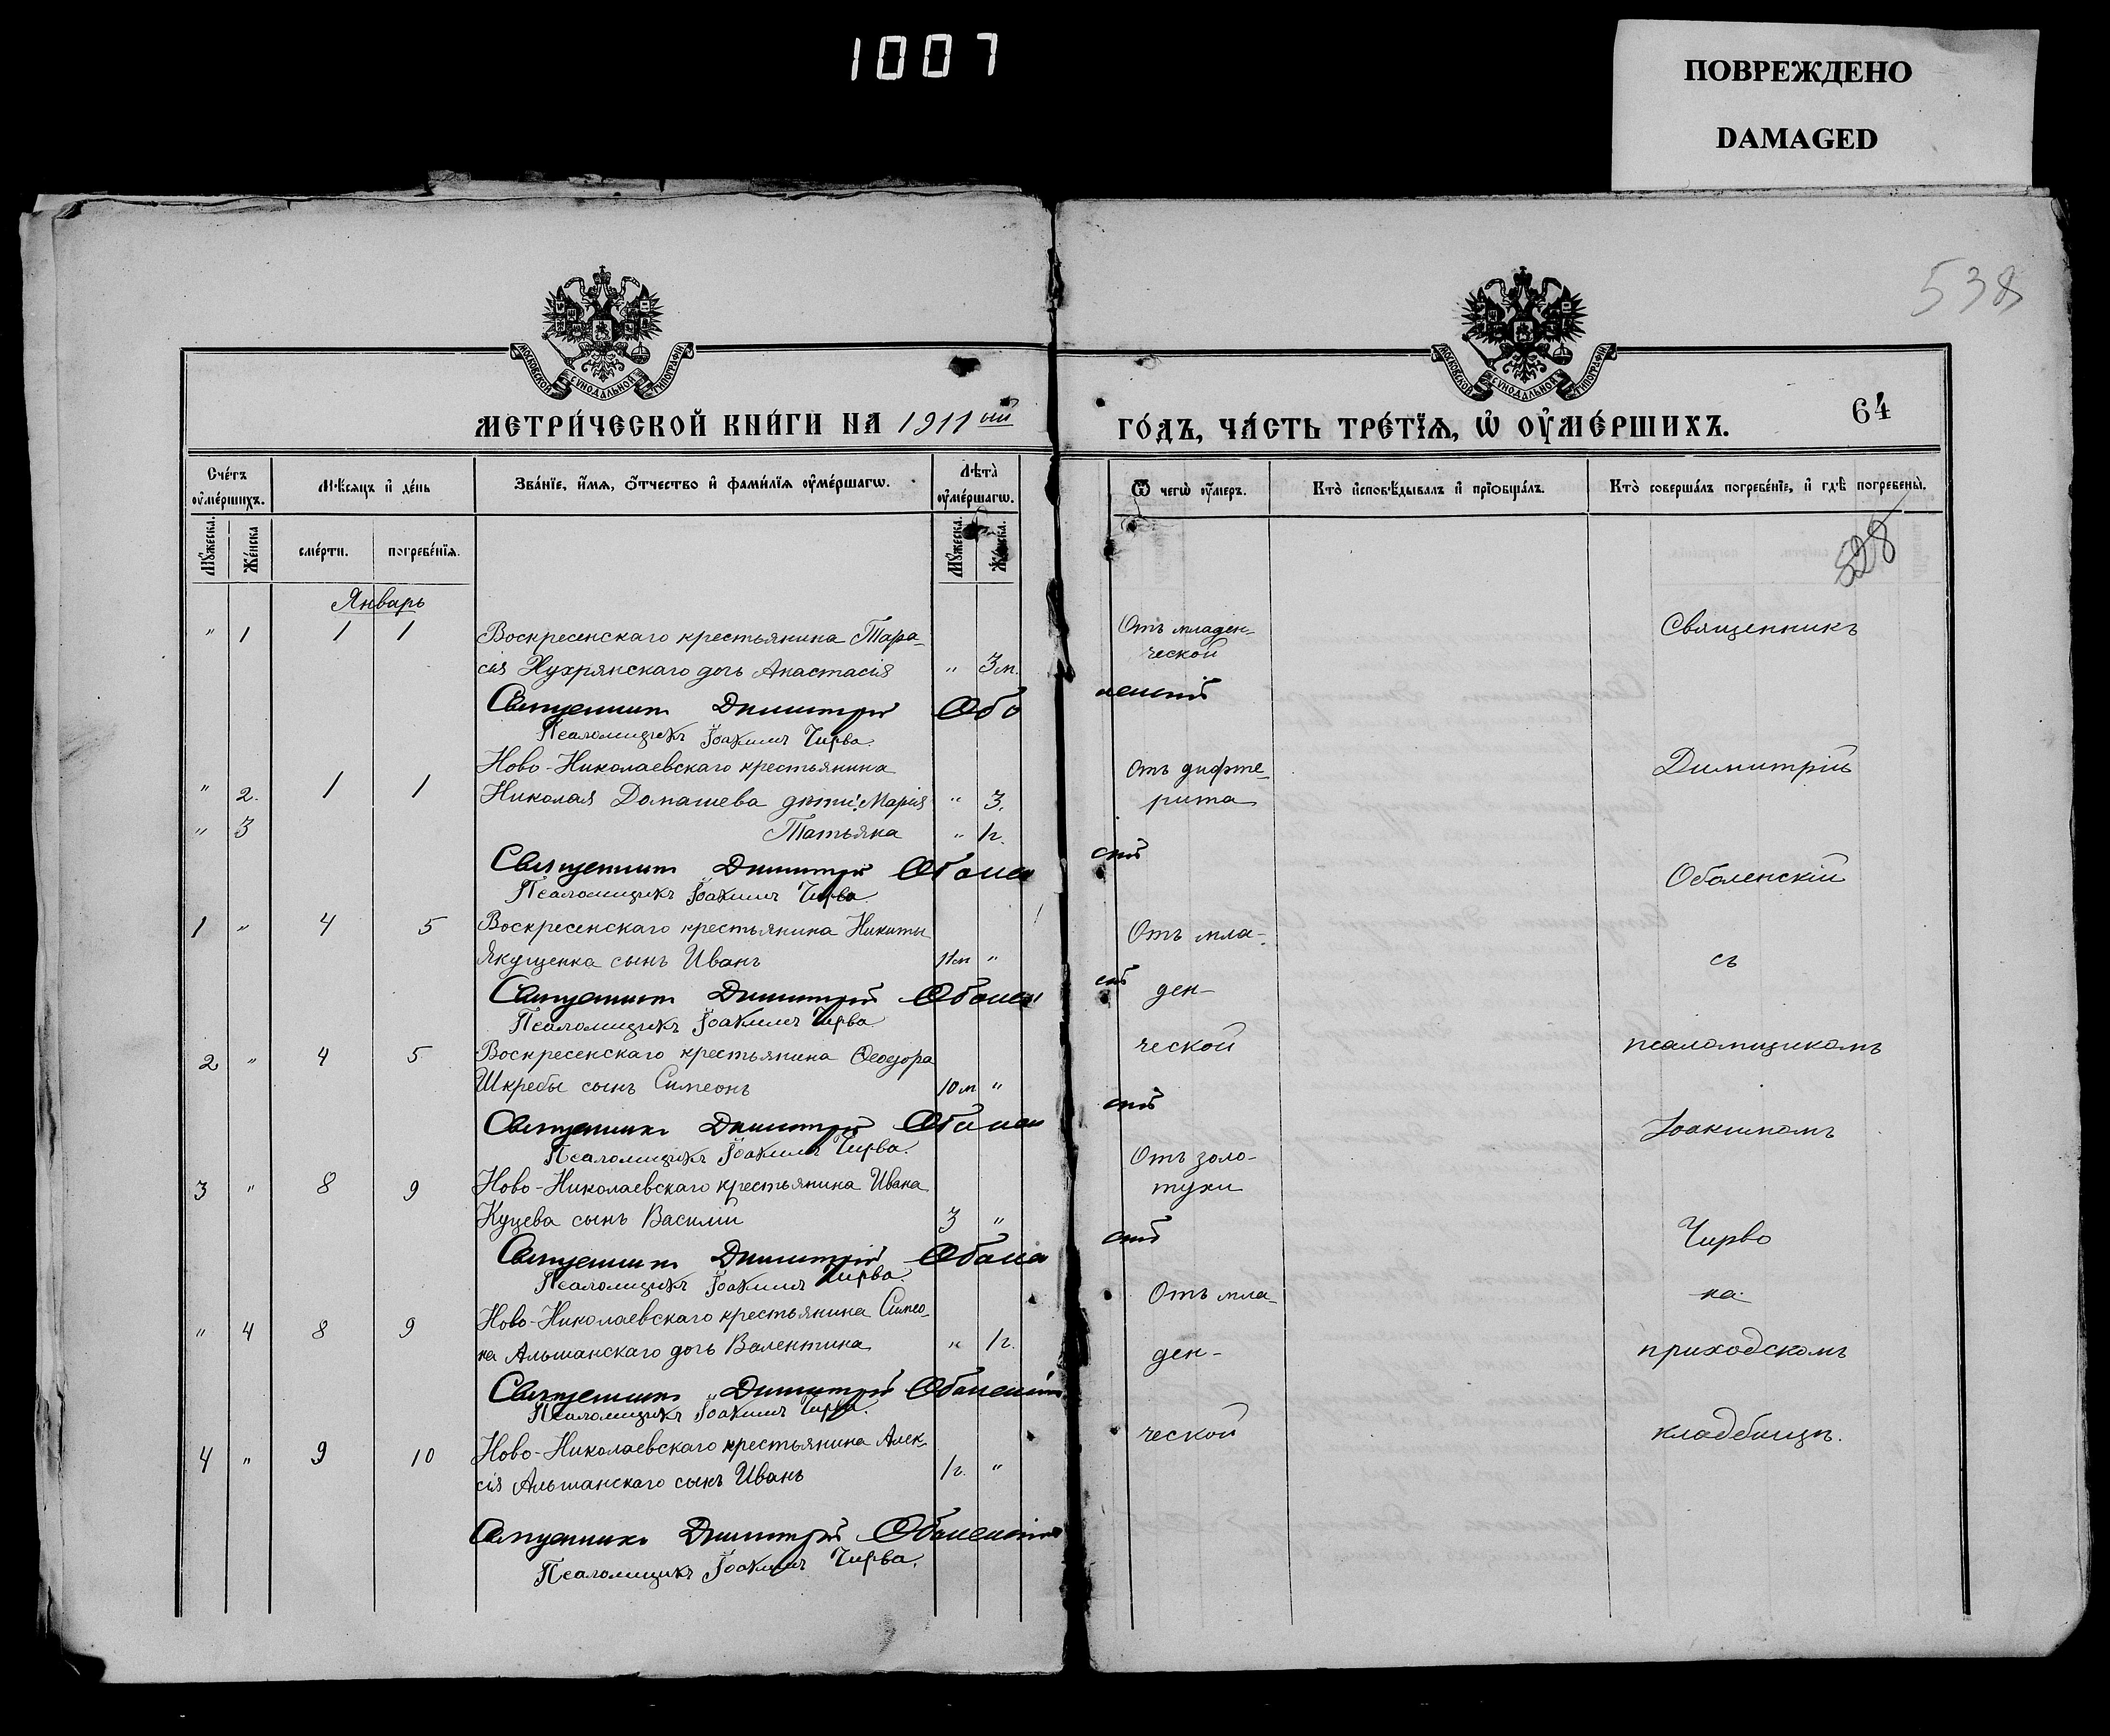 1007
ПОВРЕЖДЕНО
DAMAGED
538
МОСКОВСКОЙ СУНОДАЛЬНОЙ ТИПОГРАФІИ
МОСКОВСКОЙ СУНОДАЛЬНОЙ ТИПОГРАФІИ
МЕТРИ́ЧЕСКОЙ КНИ́ГИ НА 1911 ый
ГО́ДЪ, ЧА́СТЬ ТРЕ́ТЇѦ, Ѡ҆ ОУ҆МЕ́РШИХЪ.
64
Сче́тъ оу҆ме́ршихъ.
Мѣ́сяцъ и҆ де́нь
Зва́нїе, и҆́мѧ, ѻ҆́тчество и҆ фами́лїѧ оу҆ме́ршагѡ.
Лѣ́та оу҆ме́ршагѡ.
Ѿ чегѡ̀ оу҆́меръ.
Кто̀ и҆сповѣ́дывалъ и҆ прїѡбща́лъ.
Кто̀ соверша́лъ погребе́нїе, и҆ гдѣ̀ погребены̀.
Мꙋ́жеска.
Же́нска
сме́рти.
погребе́нїѧ.
Мꙋ́жеска.
Же́нска.
528
Январь
" 1 1 1 Воскресенскаго крестьянина Тара-
сія Кухрянскаго дочь Анастасія " 3 м.
Отъ младен-
ческой
Священникъ
Священникъ Димитрій Оболенскій
Псаломщикъ Іоакимъ Чирва.
Ново-Николаевскаго крестьянина
" 2. 1 1 Николая Домашева дѣти: Марія " 3.
" 3 Татьяна " 1 г.
Отъ дифте-
рита
Димитрій
Священникъ Димитрій Оболенскій
Псаломщикъ Іоакимъ Чирва
Оболенскій
1 " 4 5 Воскресенскаго крестьянина Никиты
Якущенка сынъ Иванъ 11 м "
Отъ мла-
съ
Священникъ Димитрій Оболенскій
Псаломщикъ Іоакимъ Чирва
ден-
2 " 4 5 Воскресенскаго крестьянина Ѳеодора
Шкребы сынъ Симеонъ 10 м "
ческой
псаломщикомъ
Священникъ Димитрій Оболенскій
Псаломщикъ Іоакимъ Чирва.
Іоакимомъ
3 " 8 9 Ново-Николаевскаго крестьянина Ивана
Куцева сынъ Василій 3 "
Отъ золо-
тухи
Священникъ Димитрій Оболенскій
Псаломщикъ Іоакимъ Чирва.
Чирво
" 4 8 9 Ново-Николаевскаго крестьянина Симео-
на Альшанскаго дочь Валентина " 1 г.
Отъ мла-
ден-
на
приходскомъ
Священникъ Димитрій Оболенскій
Псаломщикъ Іоакимъ Чирва.
4 " 9 10 Ново-Николаевскаго крестьянина Алек-
сія Альшанскаго сынъ Иванъ 1 г. "
ческой
кладбищѣ.
Священникъ Димитрій Оболенскій
Псаломщикъ Іоакимъ Чирва.